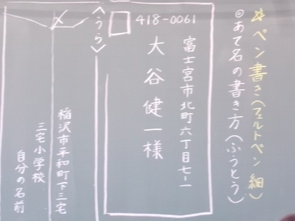 ※ペン書き(フェルトペン 細)
◎あて名の書き方(ふうとう)
418-0061
富士宮市北町六丁目七ー1
大谷健一様
〈うら〉
稲沢市平和町下三宅
三宅小学校
自分の名前